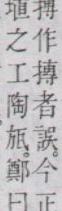 搏作摶者誤。今正
埴之工陶瓬。鄭曰